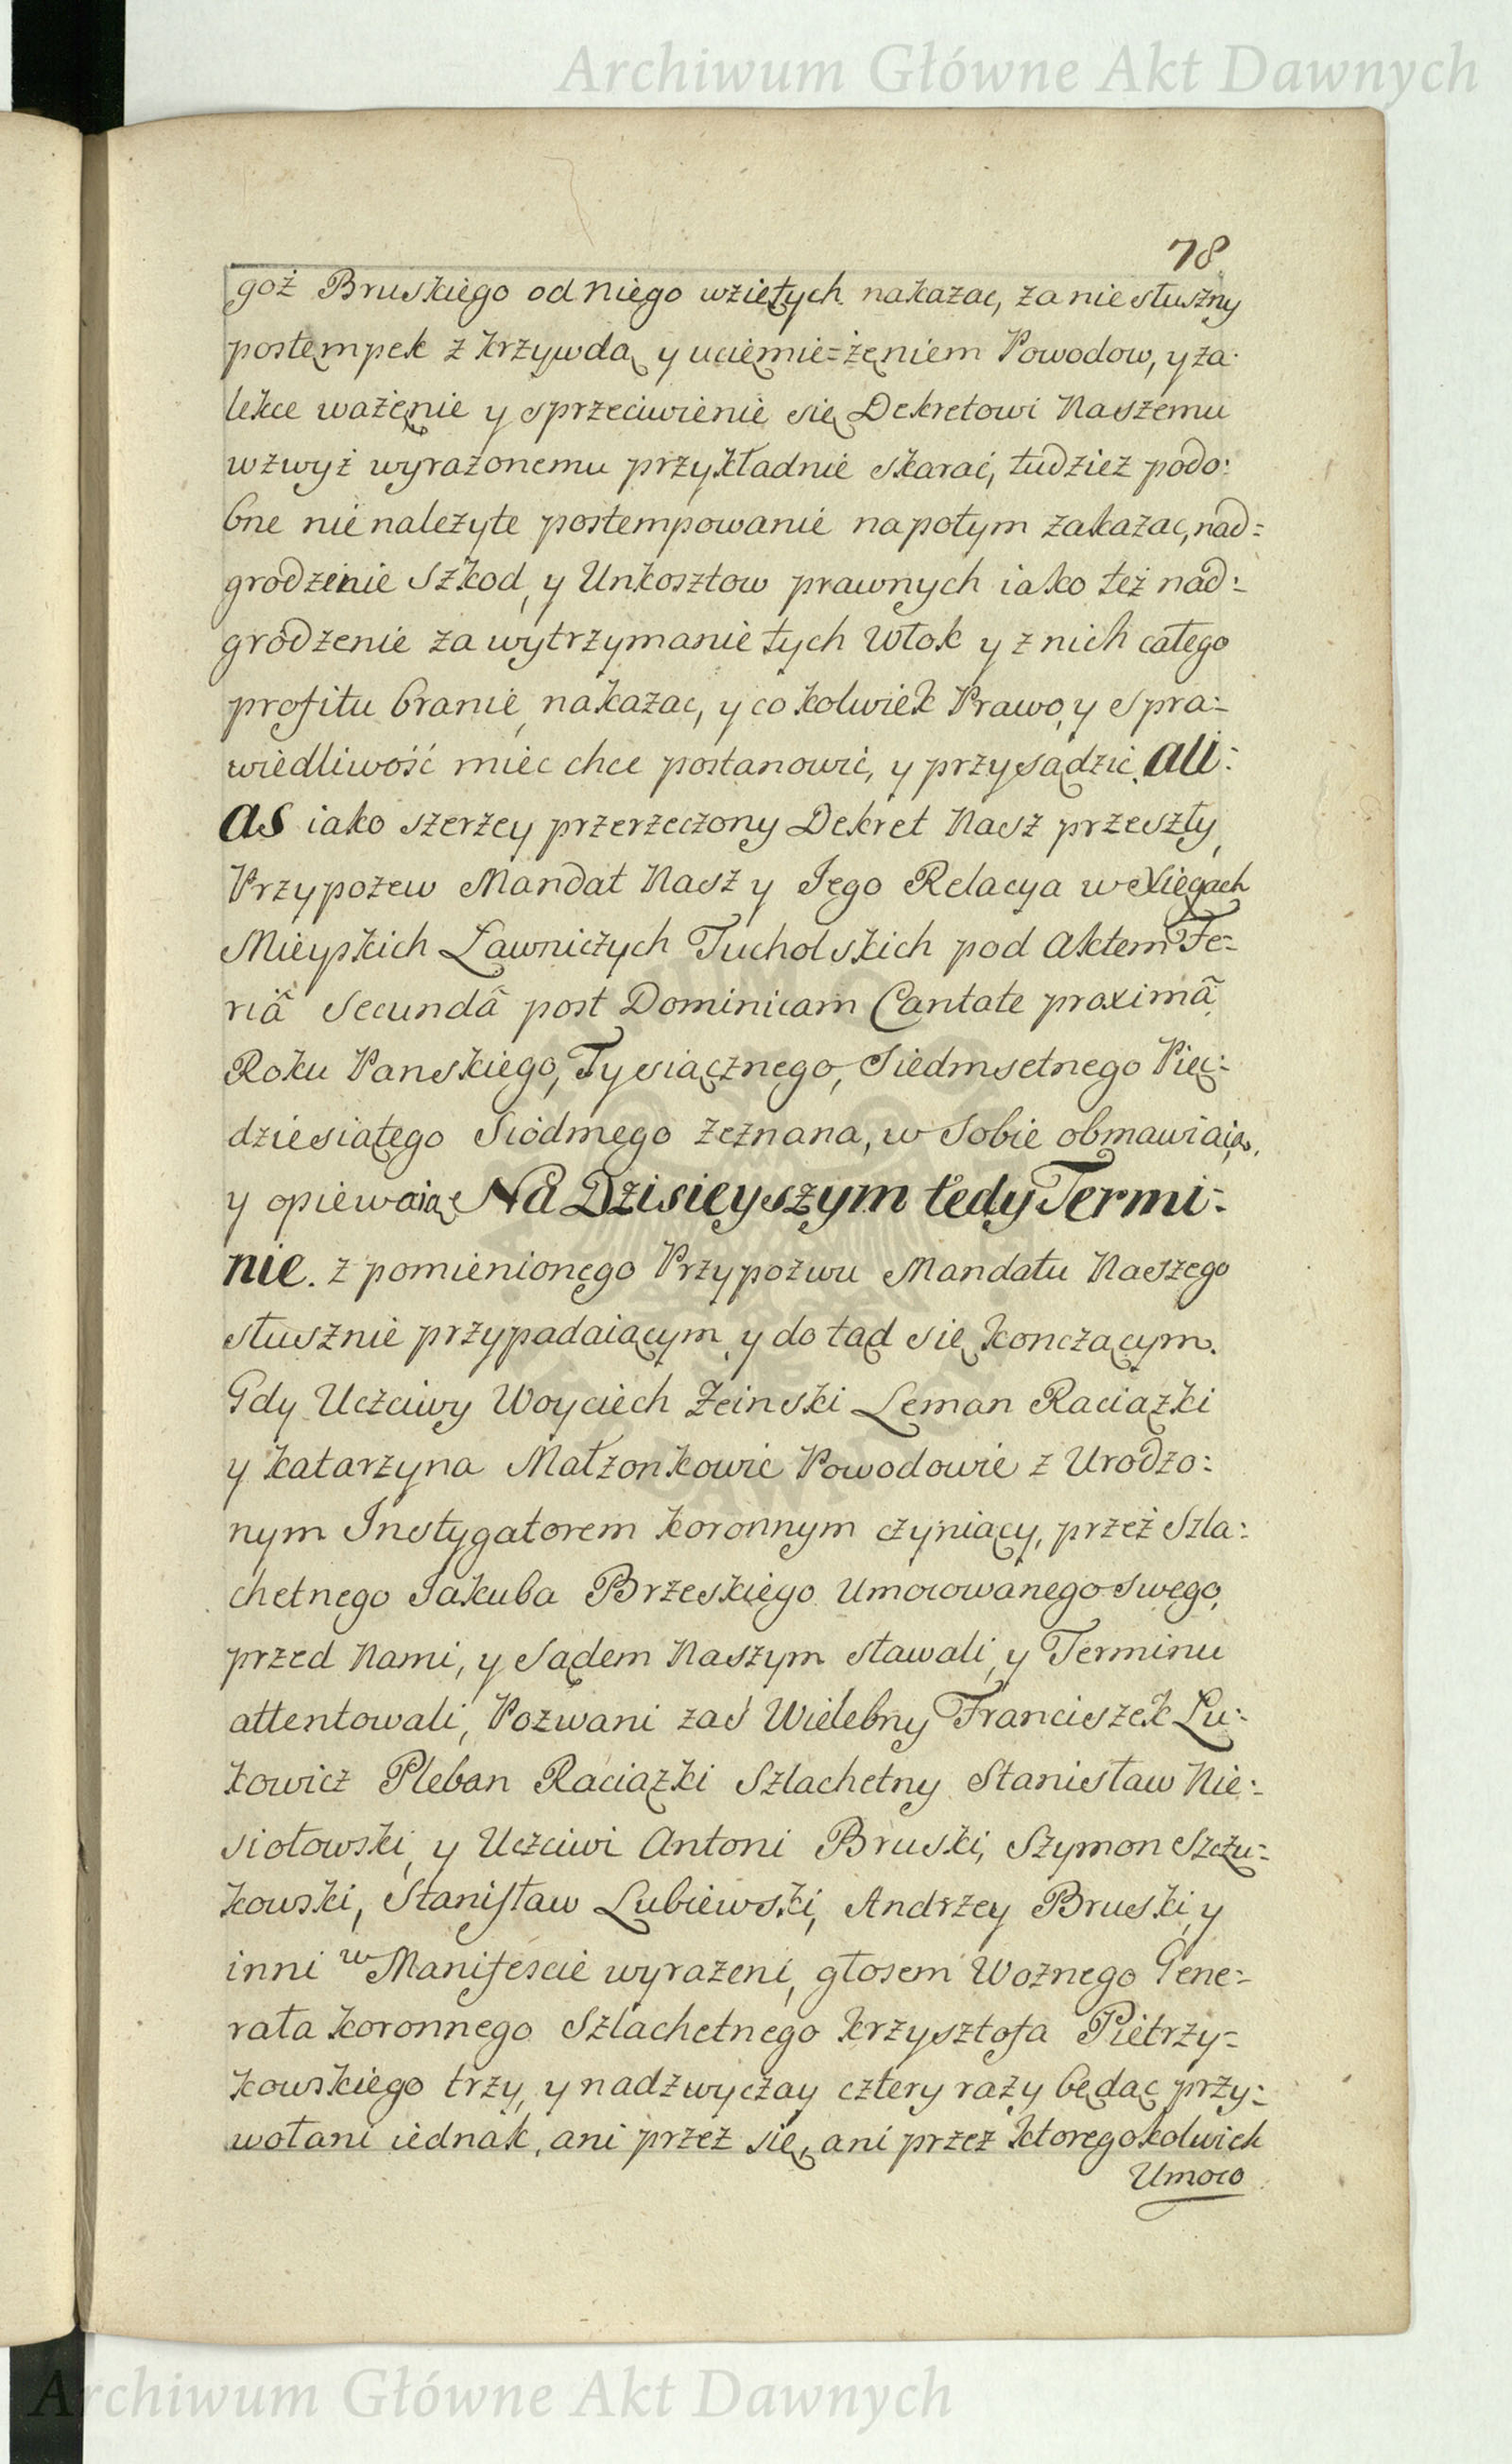 Archiwum Główne Akt Dawnych
78
goż Bruskiego od niego wziętych nakazac, za niesłuszny
postęmpek z krzywdą y ucięmie=żęniem Powodow, y za
lekce ważęnie y sprzeciwienie się Dekretowi Naszemu
wzwyż wyrażonemu przykładnie skarać, tudziez podo:
bne nienależyte postempowanie napotym zakazac, nad=
grodzenie Szkod, y Unkosztow prawnych iako też nad:
grodzenie za wytrzymanie tych Włok y z nich całego
profitu branie, nakazac, y cokolwiek Prawo, y Spra=
wiedliwość miec chce postanowić, y przysądzic. ali:
as iako szerzey przerzeczony Dekret Nasz przeszły,
Przypozew Mandat Nasz y Jego Relacya w Xięgach
Mieyskich Ławniczych Tucholskich pod Aktem Fe=
riâ Secundâ post Dominicam Cantate proximâ
Roku Panskiego, Tysiącznego, Siedmsetnego Pięć:
dziesiątego Siodmego zeznana, w Sobie obmawiaią,
y opiewaią Na Dzisieyszym tedy Termi:
nie. z pomienionego Przypozwu Mandatu Naszego
słusznie przypadaiącym, y do tąd się konczącym.
Gdy Uczciwy Woyciech Zeinski Leman Raciązki
y Katarzyna Małzonkowie Powodowie z Urodzo:
nym Instygatorem koronnym czyniący, przez Szla:
chetnego Jakuba Brzeskiego Umocowanego Swego,
przed Nami, y Sądem Naszym stawali, y Terminu
attentowali, Pozwani zaś Wielebny Franciszek Lu:
kowicz Pleban Raciązki Szlachetny Stanisław Nie:
siołowski, y Uczciwi Antoni Bruski, Szymon Szczu=
kowski, Stanisław Lubiewski, Andrzey Bruski, y
inni w Manifescie wyrazeni, głosem Woznego Gene=
rała koronnego Szlachetnego Krzysztofa Pietrzy=
kowskiego trzy, y nadzwyczay cztery razy będąc przy:
wołani iednak, ani przez się, ani przez ktoregokolwiek
Umoco
Archiwum Główne Akt Dawnych